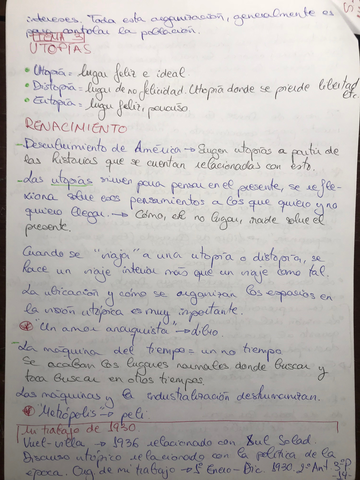 intereses. Toda esta organización, generalmente es
para controlar la población.
TEMA 3
UTOPÍAS
• Utopía = lugar feliz e ideal
• Distopía = lugar de no felicidad. Utopía donde se pierde libertad, etc.
• Eutopía = lugar feliz, paraíso
RENACIMIENTO
- Descubrimiento de América → Surgen utopías a partir de
las historias que se cuentan relacionadas con esto.
- Las utopías sirven para pensar en el presente, se refle-
xiona sobre esos pensamientos a los que quiero y no
quiero llegar. → Cómo, el no lugar, incide sobre el
presente.
Cuando se "viaja" a una utopía o distopía, se
hace un viaje interior más que un viaje como tal.
La ubicación y cómo se organizan los espacios en
la visión utópica es muy importante.
"Un amor anarquista" → libro
- La máquina del tiempo = un no tiempo
Se acaban los lugares normales donde buscar y
toca buscar en otros tiempos.
Las máquinas y la industrialización deshumanizan.
"Metrópolis" → peli
Mi trabajo de 1930
Vuel-villa → 1936 relacionado con Xul Solar.
Discurso utópico relacionado con la política de la
época. Org. de mi trabajo → 1º Enero-Dic. 1930 2º Ant